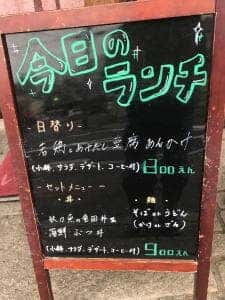 今日の
ランチ
- 日替り -
若鶏と揚げだし豆腐 あんかけ
(小鉢、サラダ、デザート、コーヒー付) 800えん
- セットメニュー -
- 丼 - - 麺 -
そば or うどん
(かけ or ざる)
海鮮 ぶつ丼
(小鉢、サラダ、デザート、コーヒー付) 900えん